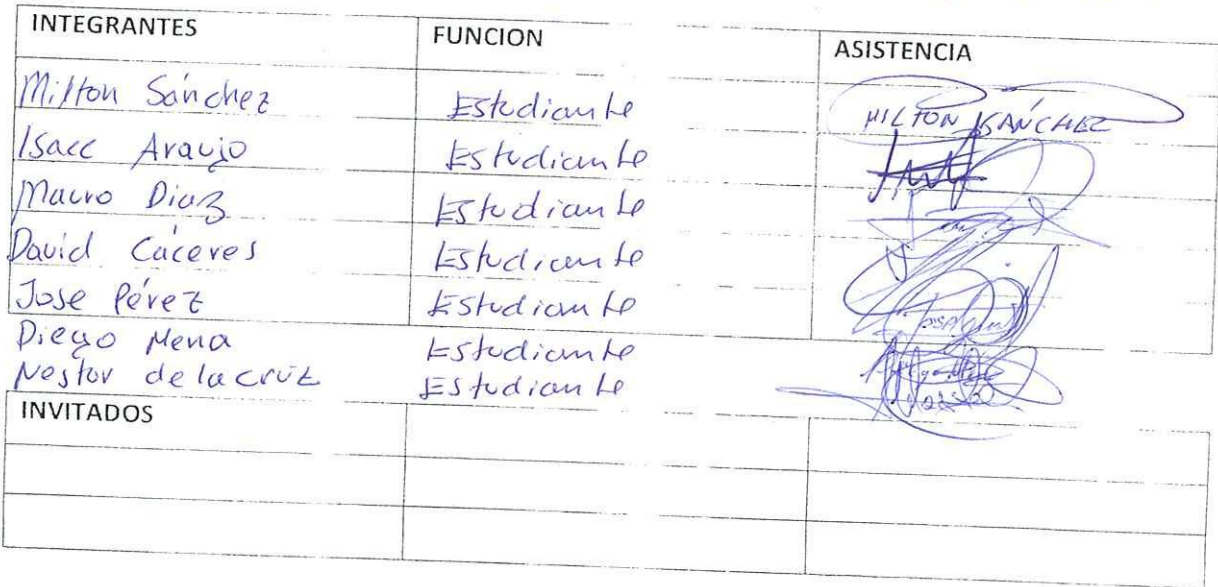 INTEGRANTES FUNCION ASISTENCIA
Milton Sánchez Estudiante MILTON SANCHEZ
Isacc Araujo Estudiante
Mauro Diaz Estudiante
David Cáceres Estudiante
Jose Pérez Estudiante
Diego Mena Estudiante
Nestor de la cruz Estudiante
INVITADOS